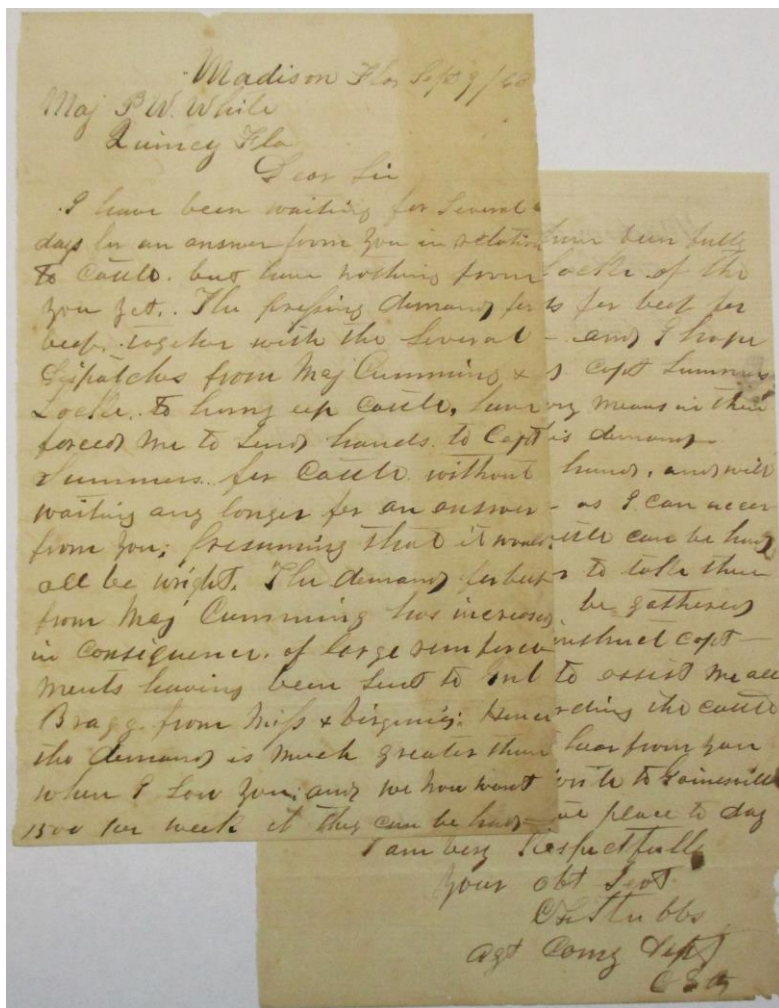 Madison Fla Sept 9/63
Maj P. W. White
Quincy Fla
Dear Sir
I have been waiting for Several
days for an answer from you in relation
to Cattle. but have nothing from
you yet.. The pressing demand for
beef, together with the Several
dispatches from Maj Cumming &
Locke. to hurry up Cattle, have
forced me to Send hands. to Capt
Summers. for Cattle without
waiting any longer for an answer
from you; presuming that it would
all be wright. The demand for beef
from Maj Cumming has increased
in consequence. of large reinforce
ments having been sent to Genl
Bragg. from Miss & Virginia. Hence
the demand is much greater than
when I Saw you; and we now want
1500 per week if they can be had—
have been fully
Locke. of the
ts for beef for
— and I hope
Capt Summers
ry means in their
is demand—
hand, and will
— as I can
ttle can be had
to take them
be gathered
instruct Capt—
to assist me all
rding the cattle
hear from you
write to Gainesville
place to day
I am very Respectfully
Your obt Sevt
C F Stubbs
Agt Comg Dept
C S A